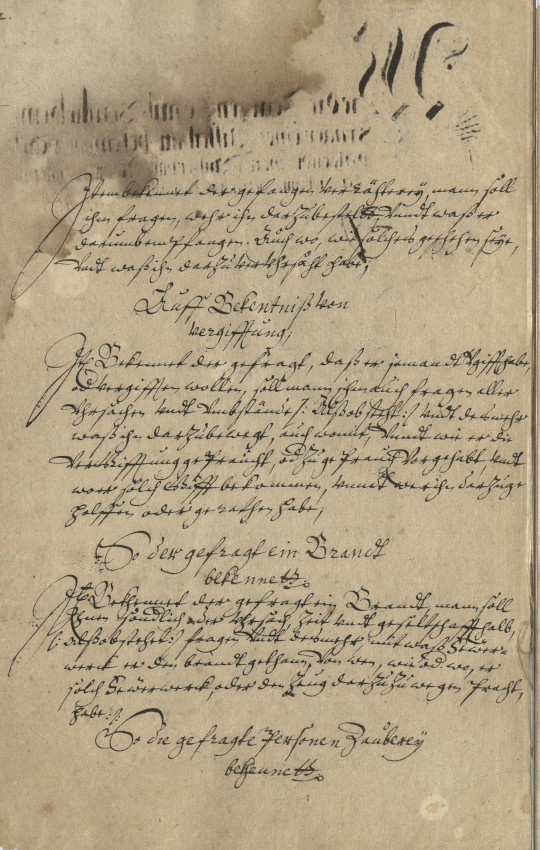 Item bekennet der gefangen Verrähterey, mann soll
ihn fragen, wehr ihn darzu bestelt, Vndt waß er
darumb empfangen. Auch wo, wie solches geschehen seye,
Vndt waß ihn darzu verVhrsacht habe,
Auff Bekentniß von
vergifftung;
It: Bekennet der gefragt, daß er jemandt Vgifft habe,
od vergifften wollen, soll mann ihn auch fragen aller
Vhrsachen Vndt Vmbstände /: Alß obsteht :/ Vndt des mehr
waß ihn darzu bewegt, auch womit, Vnndt wie er die
Vergifftung gebraucht, od zu gebrauch Vorgehabt, Vndt
wo er solch Gifft bekommen, Vnndt wer ihn darzu ge
holffen oder gerathen habe;
So der gefragt ein Brandt
bekennet.
It: Bekennet der gefragt ein Brandt, mann soll
Ihnen sondlich der Vhrsach, Zeit Vndt geselschafft halb,
/: alß obstehet :/ fragen Vndt des mehr, mit waß Fewer=
werck er den brandt gethann, Von wem, wie od wo, er
solch Fewerwerck, oder den Zeug darzu zu wegen bracht,
habe:/.
So die gefragte Personen Zauberey
bekennet.